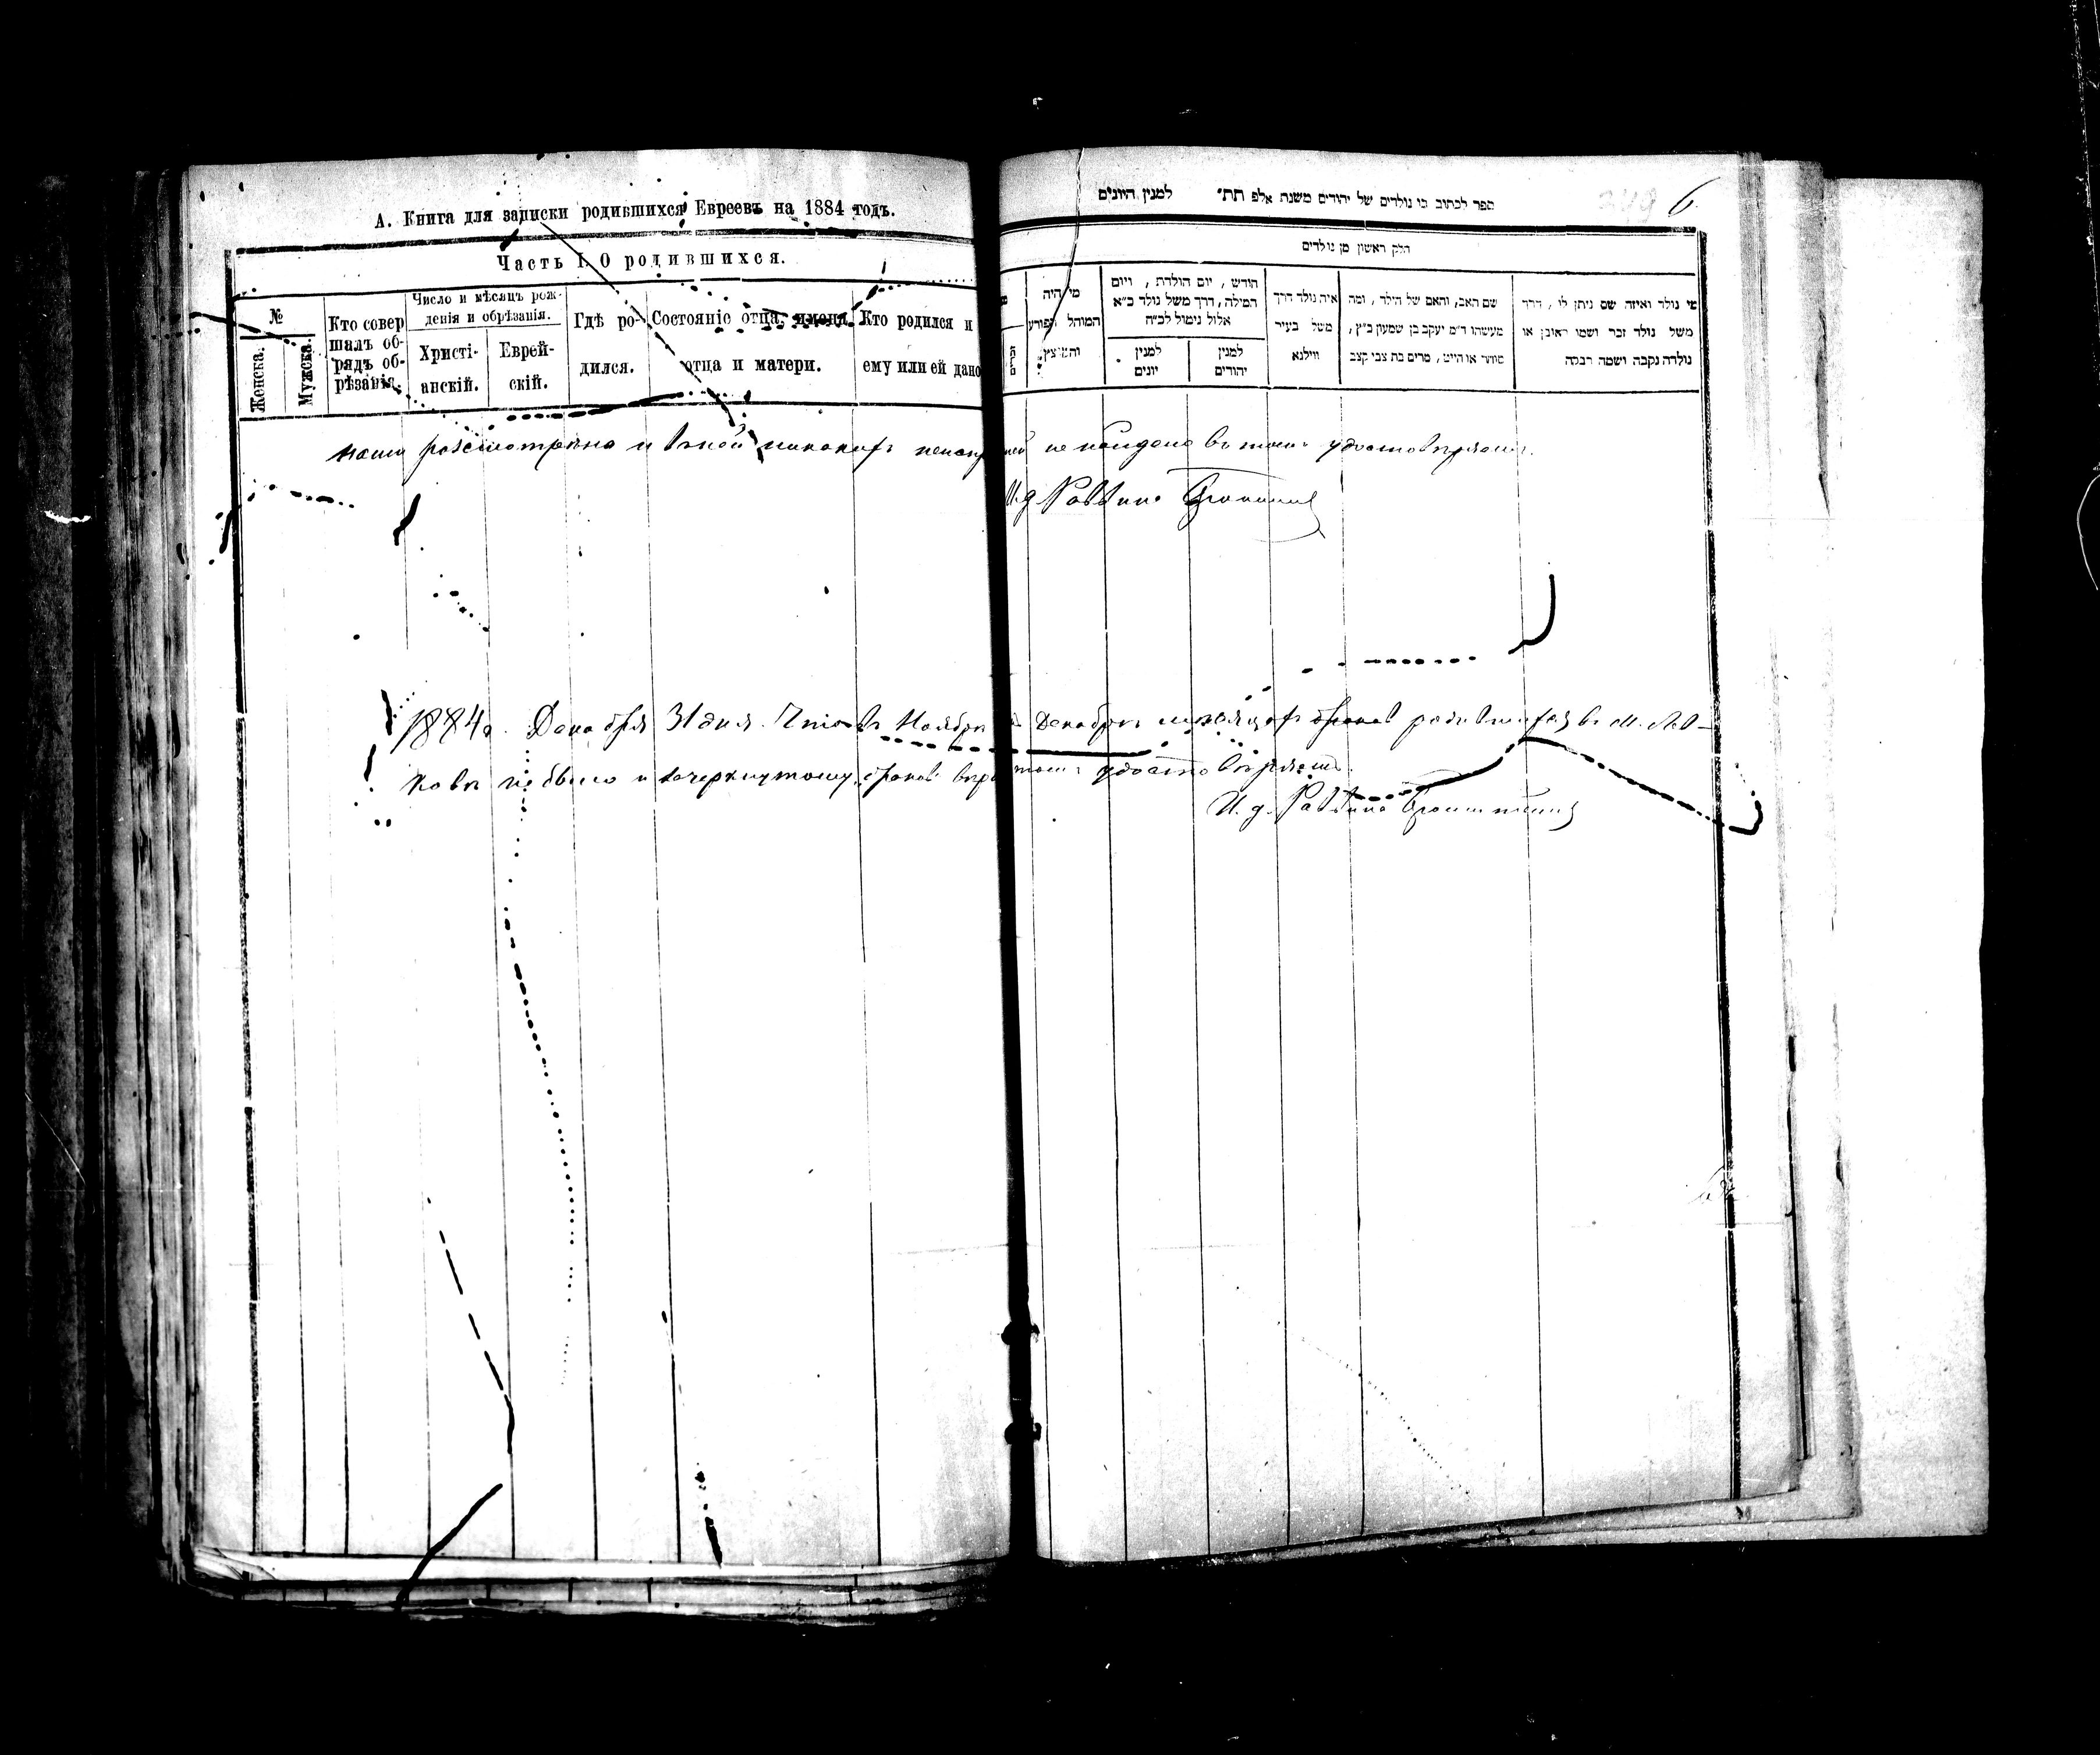 А. Книга для записки родившихся Евреевъ на 1884 годъ.
Часть I. О родившихся.
№
Женска.
Мужска.
Кто совер
шалъ об-
рядъ об-
рѣзанія.
Число и мѣсяцъ рож-
денія и обрѣзанія.
Христі-
анскій.
Еврей-
скій.
Гдѣ ро-
дился.
Состояніе отца, имена
отца и матери.
Кто родился и
ему или ей дано
ספר לכתוב בו נולדים של יהודים משנת אלף תת״ למנין היונים
6
חלק ראשון מן נולדים
מי היה
המוהל הפורע
והמוצץ
חודש, יום הולדת, ויום
המילה, דרך משל נולד כ״א
אלול נימול לכ״ח
למנין
יונים
למנין
יהודים
איה נולד דרך
משל בעיר
ווילנא
שם האב, והאם של הילד, ומה
מעשהו ד״מ יעקב בן שמעון כ״ץ,
סוחר או חייט, מרים בת צבי קצב
מי נולד ואיזה שם ניתן לו, דרך
משל נולד זכר ושמו ראובן או
נולדה נקבה ושמה רבקה
нами разсмотрѣна и въ ней никакихъ не найдено въ томъ удостовѣряемъ.
И. д. Раввина
1884 г. Декабря 31 дня. Что въ Ноябрѣ и Декабрѣ мѣсяцахъ браков родившихся въ М.
не было и зачеркнутому „браков" удостовѣряемъ.
И. д. Раввина